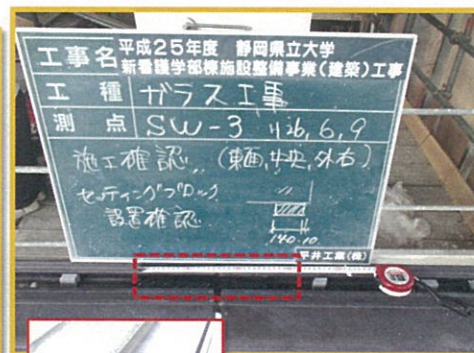 工事名 平成25年度 静岡県立大学
新看護学部棟施設整備事業(建築)工事
工種 ガラス工事
測点 SW-3 H26,6,9
施工確認 (東面,中央,外右)
セッティングブロック
設置確認
140 10
平井工業(株)